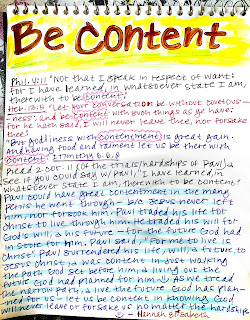 Be Content
Phil. 4:11 "Not that I speak in respect of want:
for I have learned, in whatsoever state I am,
therewith to be content."
Heb. 13:5 "Let your conversation be without covetous-
ness: and be content with such things as ye have:
for he hath said, I will never leave thee, nor forsake
thee."
"But godliness with contentment is great gain.
And having food and raiment let us be there with
content." 1 Timothy 6:6,8
Read 2 Cor. 11 (of the trials/hardships of Paul) &
see if you could say w/ Paul, "I have learned, in
whatsoever state I am, therewith to be content."
Paul could have great contentment in the many
perils he went through - b/c Jesus never left
him, nor forsook him. Paul traded his life for
Christ to live through him - He traded his will for
God's will, & his future - for the future God had
in store for him. Paul said, "For me to live is
Christ". Paul surrendered his life, will, & future, to
Jesus Christ, & was content in just walking
the path God set before him, & living out the
future God had planned for him - Have we traced
the narrow path, & live the future God has plan-
ned for us - let us be content in knowing God
will never leave or forsake us no matter the hardships
- Hannah Elisabeth